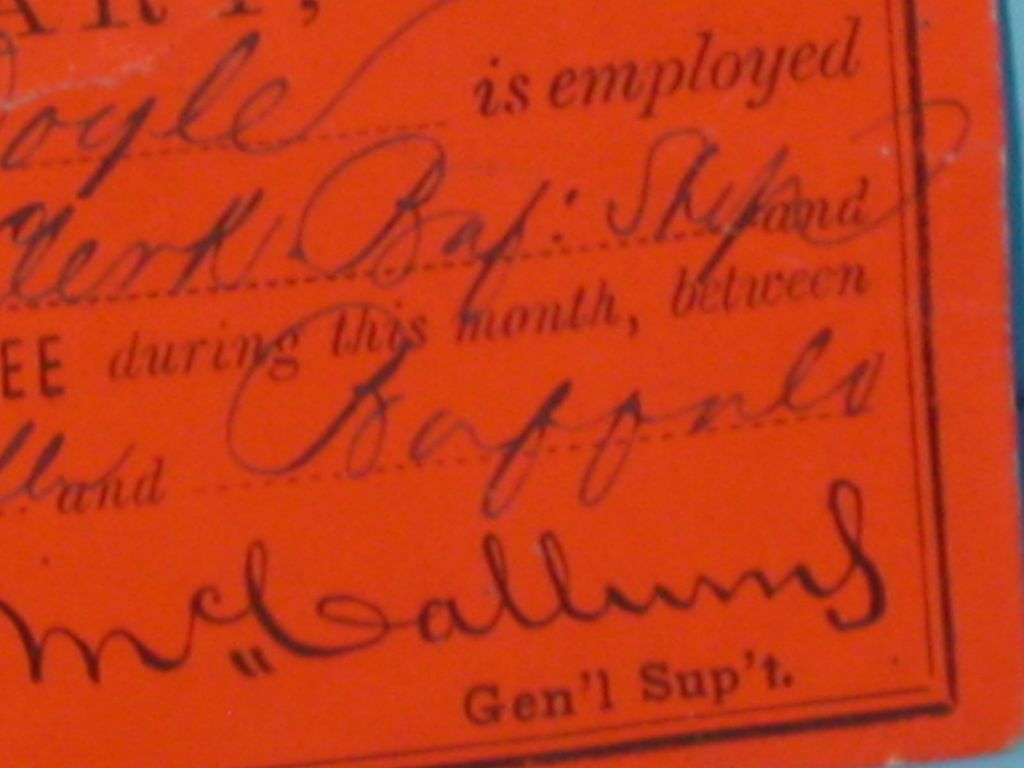 ARY,
oyle is employed
Clerk. Buf: Shop and
EE during this month, between
and Buffalo
McCallum
Gen'l Sup't.